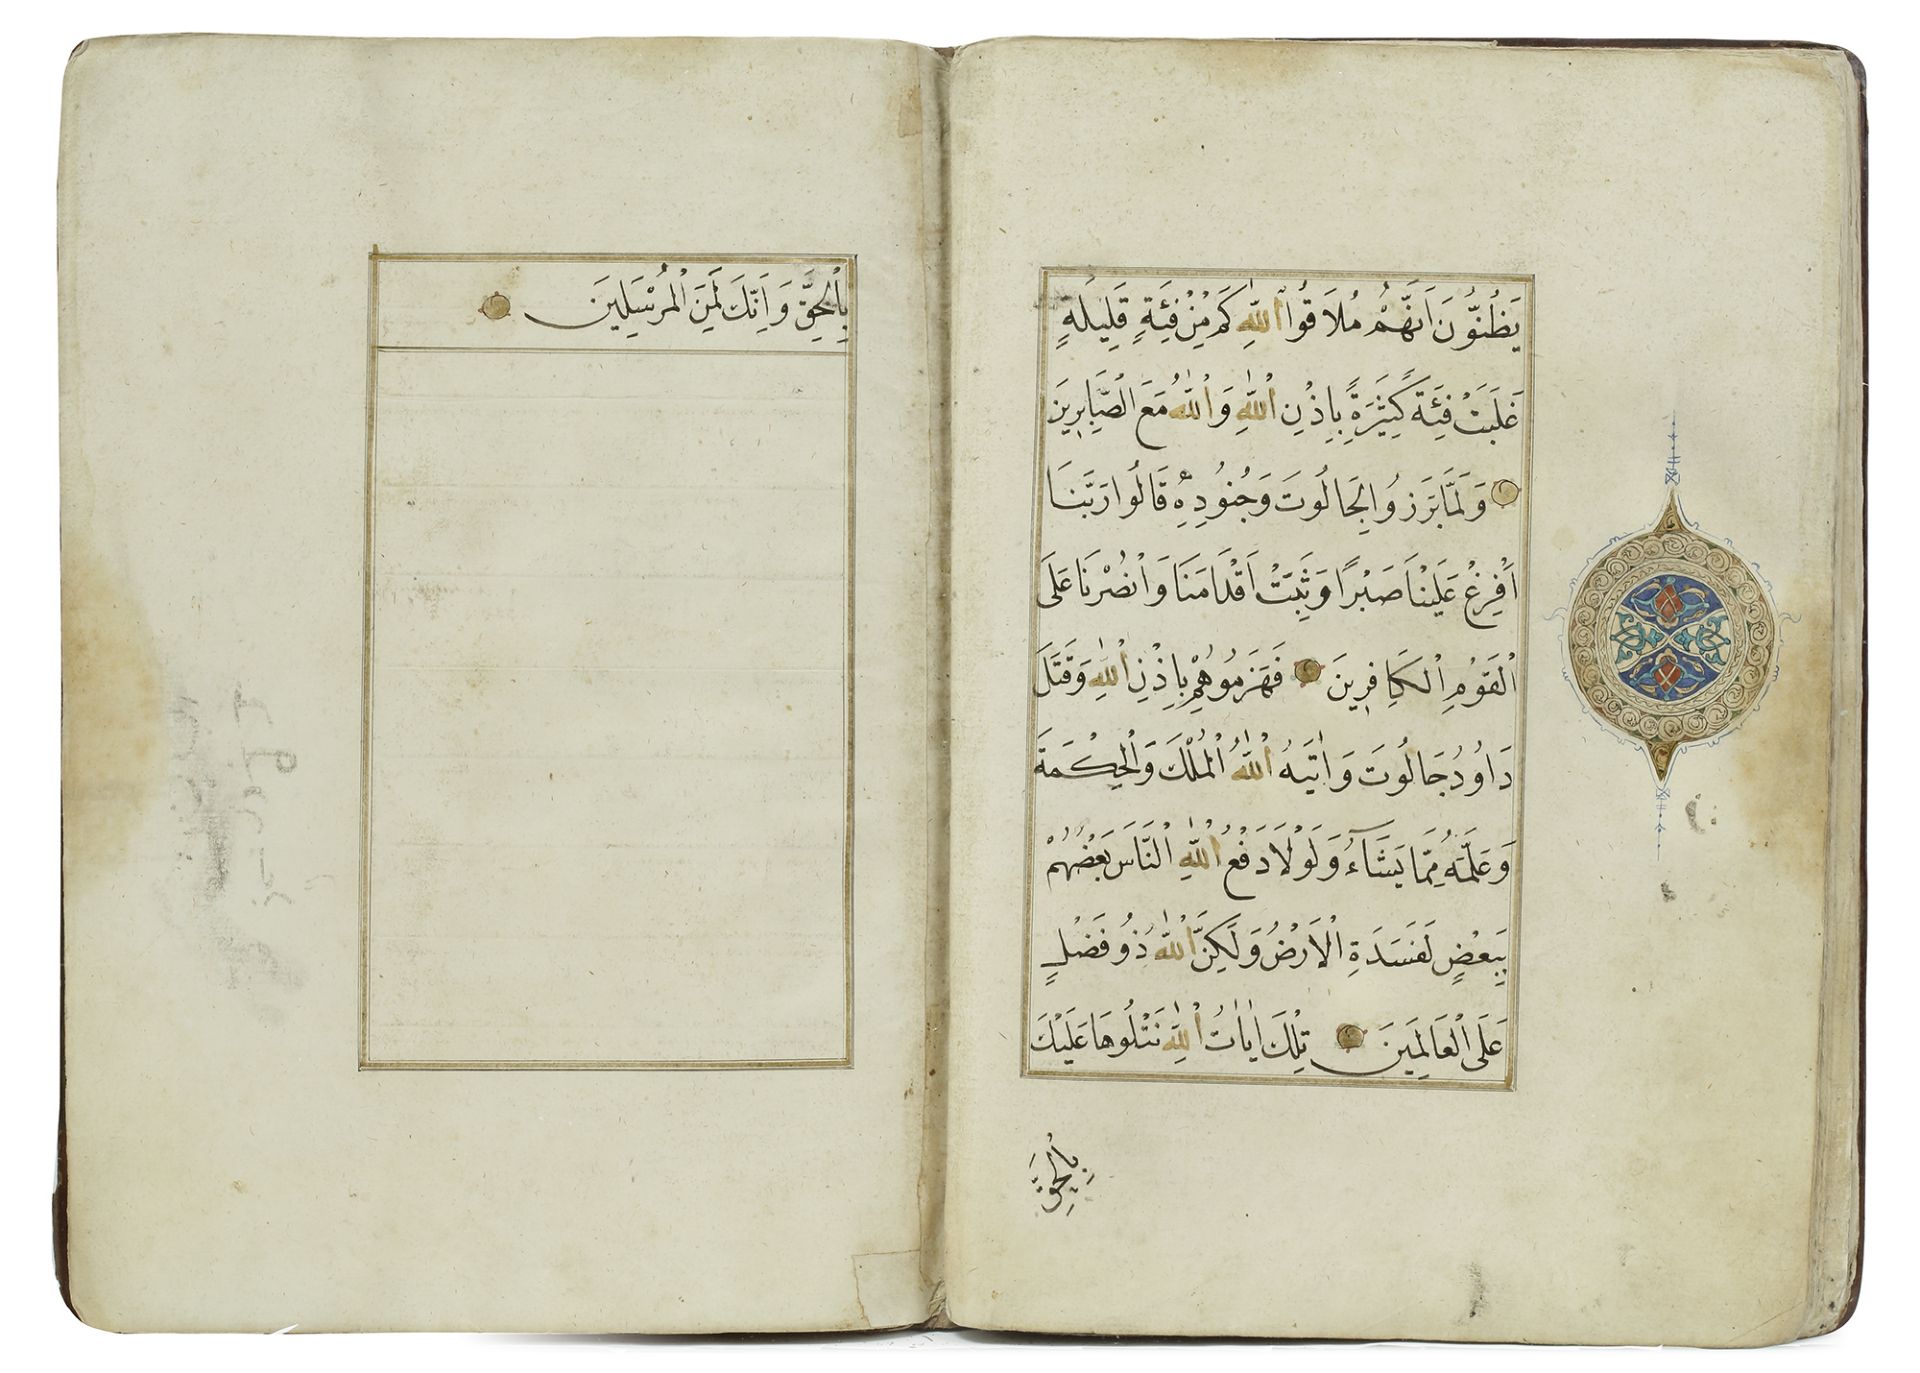 يَظُنُّونَ اَنَّهُمْ مُلَاقُوا اللّٰهِ كَمْ مِنْ فِئَةٍ قَلِيلَةٍ
غَلَبَتْ فِئَةً كَثِيَرةً بِاِذْنِ اللّٰهِ وَاللّٰهُ مَعَ الصَّابِرِينَ
وَلَمَّا بَرَزُوا لِجَالُوتَ وَجُنُودِهِ قَالُوا رَبَّنَا
اَفْرِغْ عَلَيْنَا صَبْرًا وَثَبِّتْ اَقْدَامَنَا وَانْصُرْنَا عَلَى
الْقَوْمِ الْكَافِرِينَ فَهَزَمُوهُمْ بِاِذْنِ اللّٰهِ وَقَتَلَ
دَاوُدُ جَالُوتَ وَاٰتٰيهُ اللّٰهُ الْمُلْكَ وَالْحِكْمَةَ
وَعَلَّمَهُ مِمَّا يَشَآءُ وَلَوْلَا دَفْعُ اللّٰهِ النَّاسَ بَعْضَهُمْ
بِبَعْضٍ لَفَسَدَةِ الْاَرْضُ وَلَكِنَّ اللّٰهَ ذُو فَضْلٍ
عَلَى الْعَالَمِينَ تِلْكَ اٰيَاتُ اللّٰهِ نَتْلُوهَا عَلَيْكَ
بِالْحَقِّ
بِالْحَقِّ وَاِنَّكَ لَمِنَ الْمُرْسَلِينَ